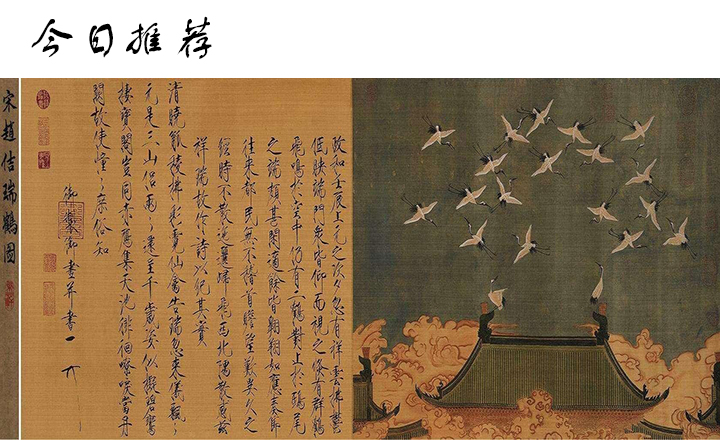 今日推荐
政和壬辰上元之次夕忽有祥雲拂鬱
低映端門衆皆仰而視之倏有群鶴
飛鳴於空中仍有二鶴對止於鴟尾
之端頗甚閑適餘皆翱翔如應奏節
往來都民無不稽首瞻望歎異久之
經時不散迤邐歸飛西北隅散感茲
祥瑞故作詩以紀其實
清曉觚稜拂彩霓仙禽告瑞忽來儀飄々
元是三山侶兩々還呈千歲姿似擬碧鸞
棲寶閣豈同赤鴈集天池徘徊嘹唳當丹
闕故使憧々庶俗知
御製御畫并書
宋趙佶瑞鶴圖